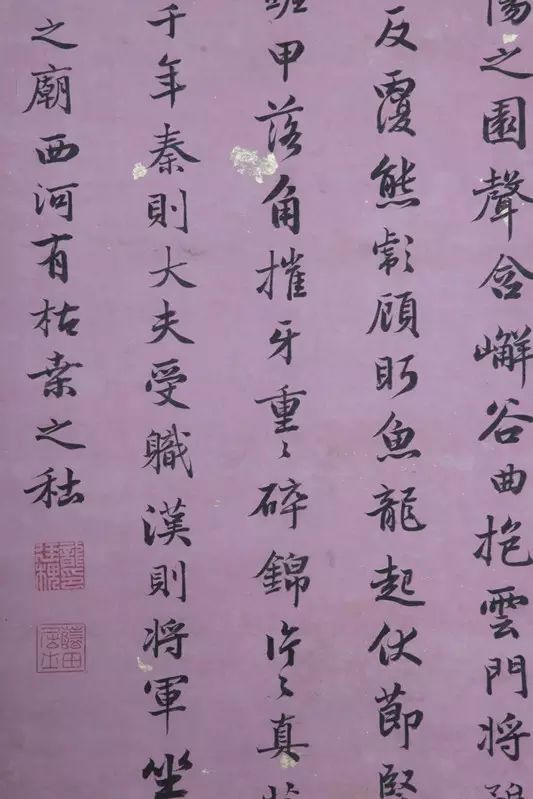 之園聲含嶰谷曲抱雲門将
反覆熊彪顧盻魚龍起伏節竪
甲落角摧牙重〻碎錦片〻真
千年秦則大夫受職漢則将軍坐
之廟西河有枯桒之社